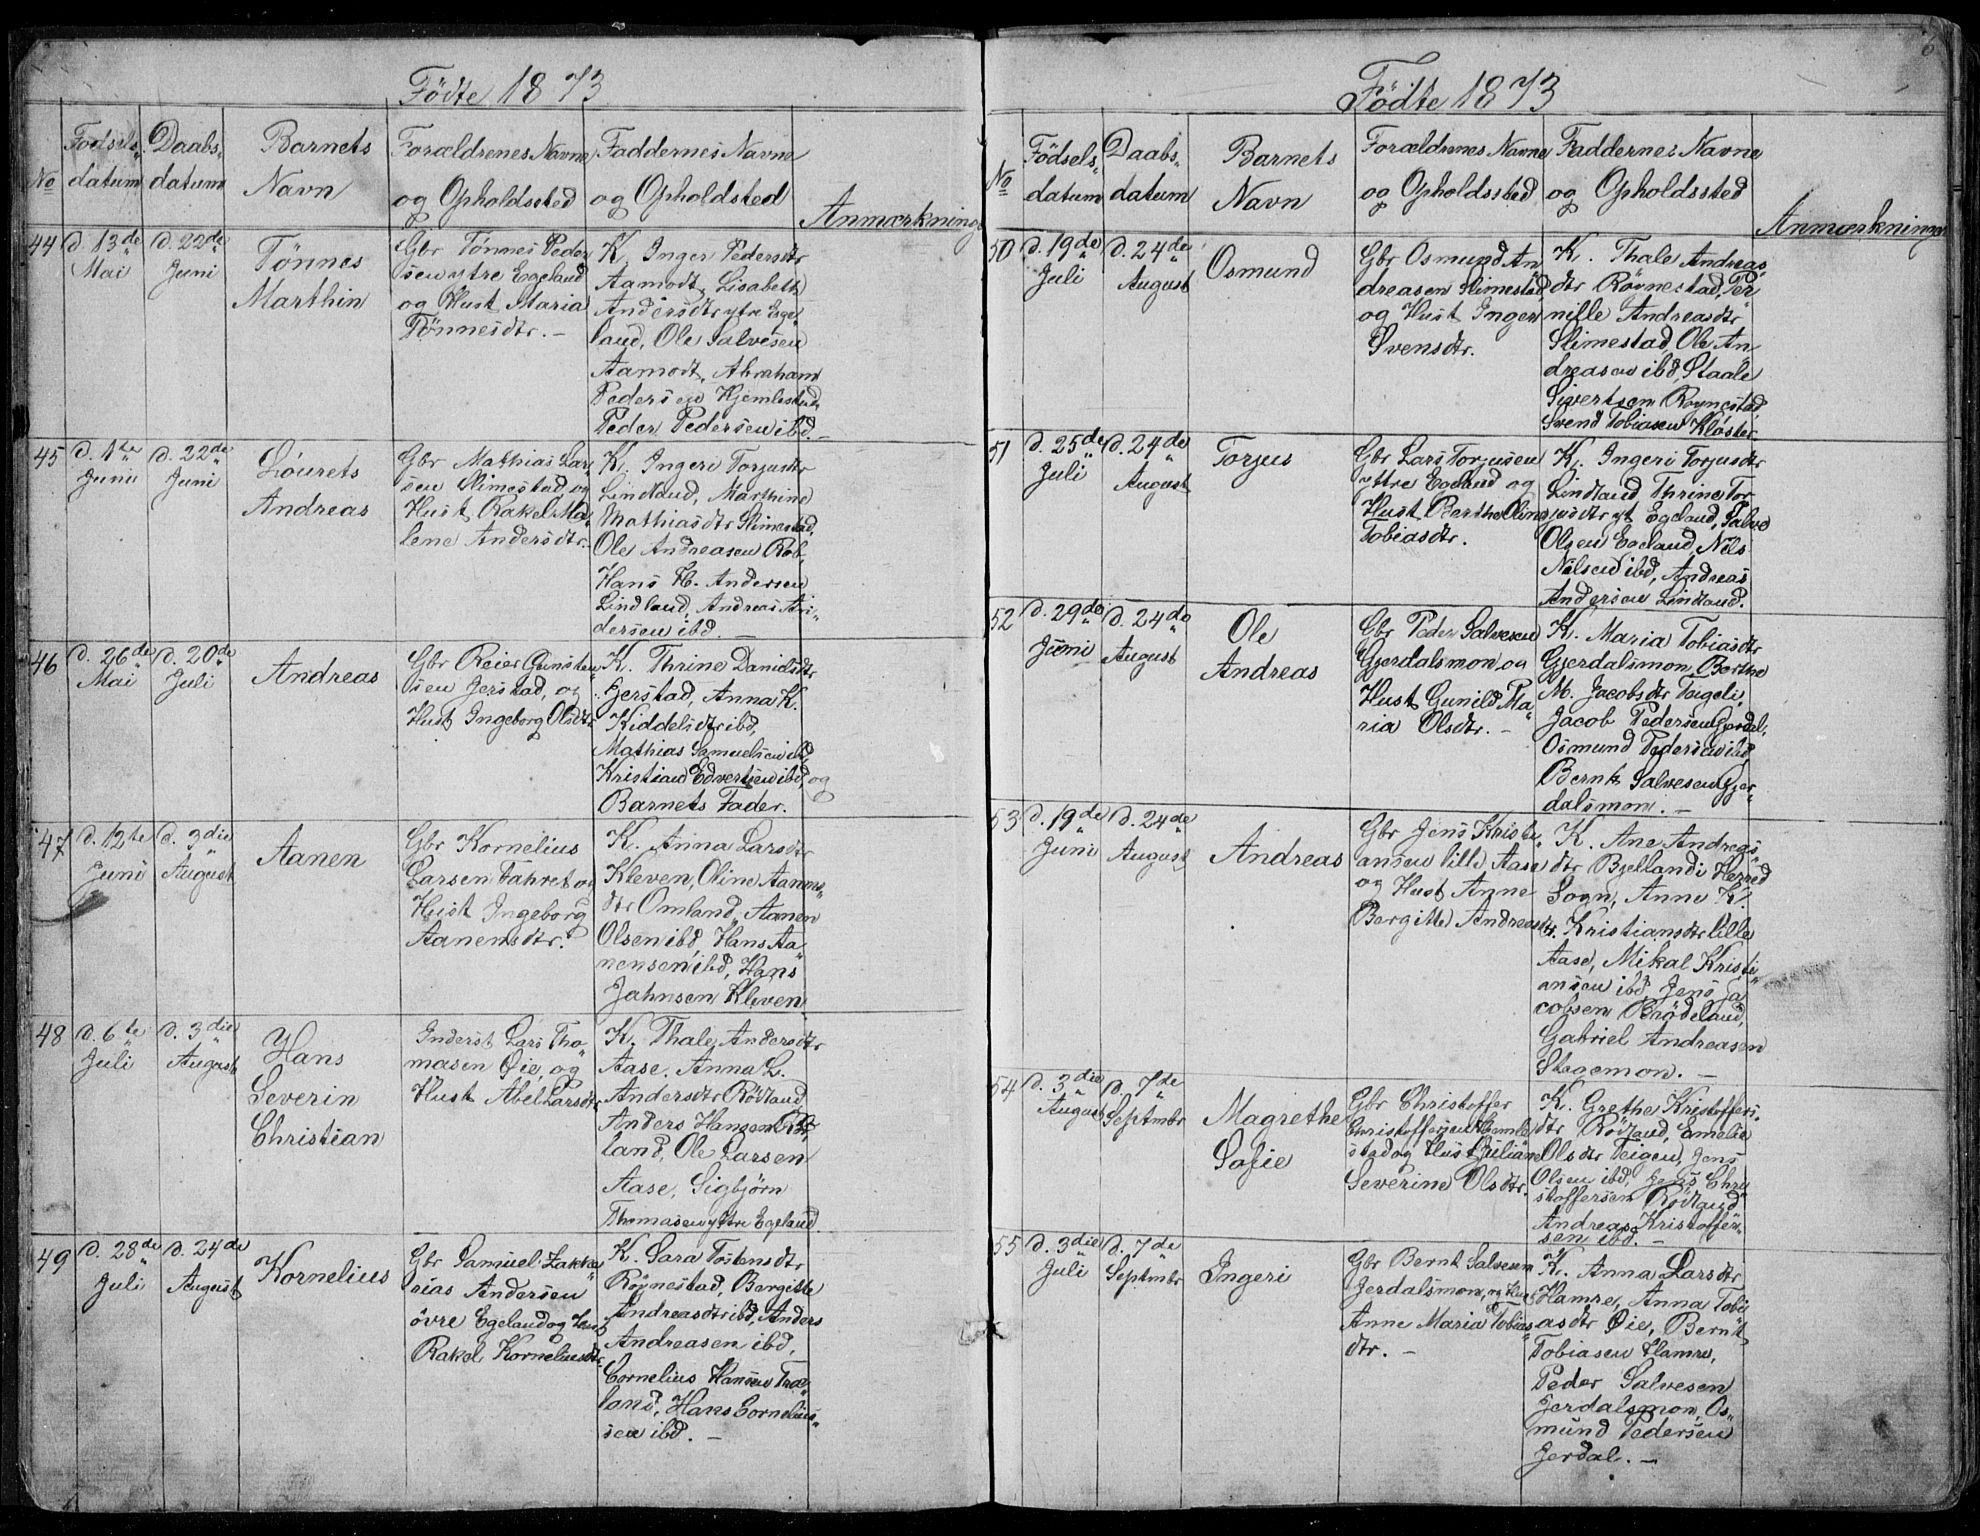 Födte 1873
No
Födsels-
datum
Daabs-
datum
Barnets
Navn
Forældrenes Navne
og Opholdssted
Faddernes Navne
og Opholdsted
Anmærkninger
44
d. 13de
Mai
d. 22de
Juni
Tönnes
Marthin
Gbr Tönnes Peder
sen ytre Egeland
og Hust Maria
Tönnesdtr. —
K. Inger Pedersdtr
Aamodt, Lisabeth
Andersdtr ytre Ege
land, Ole Salvesen
Aamodt, Abraham
Pedersen Hjemlestad,
Peder Pedersen ibd. —
45
d. 1te
Juni
d. 22de
Juni
Lourets
Andreas
Gbr Mathias Lar
sen Slimestad og
Hust Rakel Ma
lene Andersdtr.
K. Ingeri Torjusdtr
Lindland, Marthine
Mathiasdtr Slimestad,
Ole Andreasen Rob,
Hans Th. Andersen
Lindland, Andreas An-
dersen ibd. —
46
d. 26de
Mai
d. 20de
Juli
Andreas
Gbr Reier Gunsten
sen Jerstad, og
Hust Ingeborg Olsdtr
K. Thrine Danielsdtr
Gerstad, Anna K.
Kiddelsdtr ibd,
Mathias Samuelsen ibd,
Kristian Edvertsen ibd, og
Barnets Fader.
47
d. 12te
Juni
d. 3die
August
Aanen
Gbr Kornelius
Larsen Fahret og
Hust Ingeborg
Aanensdtr.
K. Anna Larsdtr
Kleven, Oline Aanens
dtr Omland, Aanen
Olsen ibd, Hans Aa
nensen ibd, Hans
Jahnsen Kleven
48
d. 6te
Juli
d. 3die
August
Hans
Severin
Christian
Inderst Lars Tho
masen Öie, og
Hust Abel Larsdtr
K. Thale Andersdtr
Aase. Anna L.
Andersdtr Rödland
Anders Hansen Röd
land, Ole Larsen
Aase, Sigbjörn
Thomasen yttre Egeland
49
d. 28de
Juli
d. 24de
August
Kornelius
Gbr Samuel Zakka
rias Andersen
övre Egeland og Hust
Rakel Korneliusdtr.
K. Sara Tostensdtr
Röynestad, Bergitte
Andreasdtr ibd, Anders
Andreasen ibd,
Cornelius Hansen Træ
land, Hans Cornelius-
sen ibd. —
6
Födte 1873
No
Födsels-
datum
Daabs-
datum
Barnets
Navn
Forældrenes Navne
og Opholdssted
Faddernes Navne
og Opholdssted
Anmærkninger
50
d. 19de
Juli
d. 24de
August
Osmund
Gbr Osmund An
dreasen Slimestad,
og Hust Inger
Svensdtr.
K. Thale Andreas
dtr Röynestad, Per
nille Andreasdtr
Slimestad, Ole An
dreasen ibd, Staale
Sivertsen Röynestad,
Svend Tobiasen Kloster
51
d. 25de
Juli
d. 24de
August
Torjus
Gbr Lars Torjusen
yttre Egeland og
Hust Berthe Oline
Tobiasdtr.
K. Ingeri Torjusdtr
Lindland Thrine Tor
jusdtr yt Egeland, Salve
Olsen Egeland, Nils
Nilsen ibd, Andreas
Andersen Lindland.
52
d. 29de
Juni
d. 24de
August
Ole
Andreas
Gbr Peder Salvesen
Gjerdalsmon og
Hust Gunild Ma
ria Olsdtr. —
K. Maria Tobiasdtr
Gjerdalsmon, Berthe
M. Jacobsdtr Tageli,
Jacob Pedersen Gjerdal,
Osmund Pedersen ibd
Bernt Salvesen Gjer
dalsmon. —
53
d. 19de
Juni
d. 24de
August
Andreas
Gbr Jens Kristi
ansen lille Aase
og Hust Anne
Bergitte Andreasdtr.
K. Ane Andreas
dtr Bjelland i Herred
Sogn, Anne K.
Kristiansdtr lille
Aase, Mikal Kristi
ansen ibd, Jens Ja
cobsen Brödeland,
Gabriel Andreasen
Stagemon. —
54
d. 3die
August
d. 7de
Septmbr
Magrethe
Sofie
Gbr Christoffer
Christoffersen Hjemle
stad og Hust Juliane
Severine Olsdtr.
K. Grethe Kristoffers
dtr Rödland, Emelie
Olsdtr Teigen, Jens
Olsen ibd, Jens Chri
stoffersen Rödland
Andreas Kristoffer
sen ibd. —
55
d. 3die
Juli
d. 7de
Septmbr
Ingeri
Gbr Bernt Salvesen
Jerdalsmon, og Hust
Anne Maria Tobias
dtr. —
K. Anna Larsdtr
Hamre, Anna Tobi
asdtr Öie, Bernt
Tobiasen Hamre,
Peder Salvesen
Jerdalsmon, Os
mund Pedersen
Jerdal. —